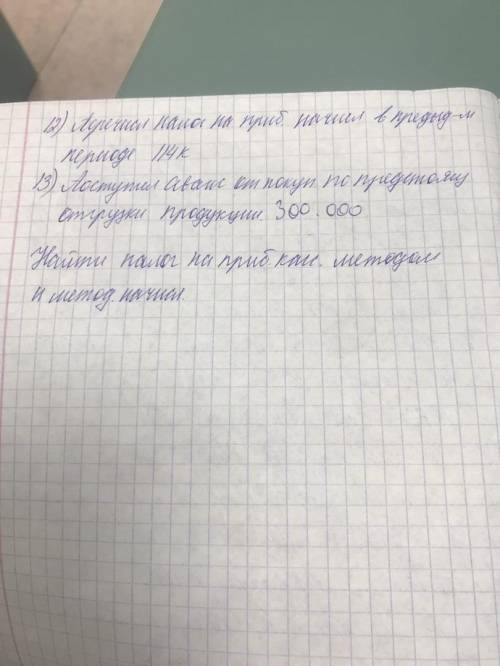 12) Перечисл налог на приб. начисл в предыд-м
периоде 114к
13) Поступил аванс от покуп. по предстоящ
отгрузки продукции 300.000
Найти налог на приб кас. методом
и метод. начисл.